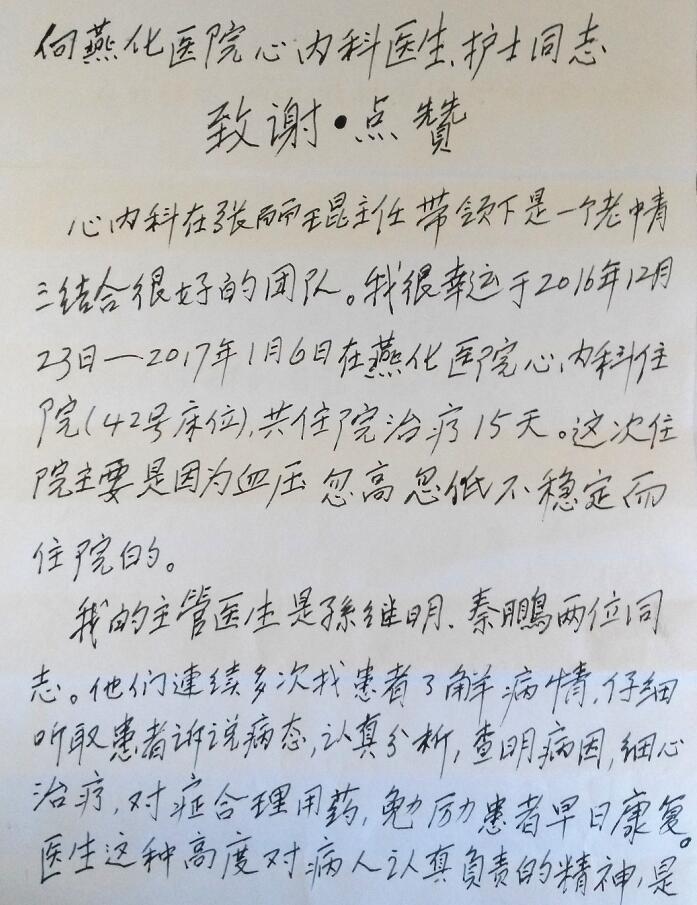 向燕化医院心内科医生、护士同志
致谢·点贊
心内科在张丽琨主任带领下是一个老中青
三结合很好的团队。我很幸运于2016年12月
23日—2017年1月6日在燕化医院心内科住
院(42号床位),共住院治疗15天。这次住
院主要是因为血压忽高忽低不稳定而
住院的。
我的主管医生是孫继明、秦鵬两位同
志。他们連续多次找患者了解病情,仔细
听取患者诉说病态,认真分析,查明病因,细心
治疗,对症合理用药,勉励患者早日康复。
医生这种高度对病人认真負责的精神,是